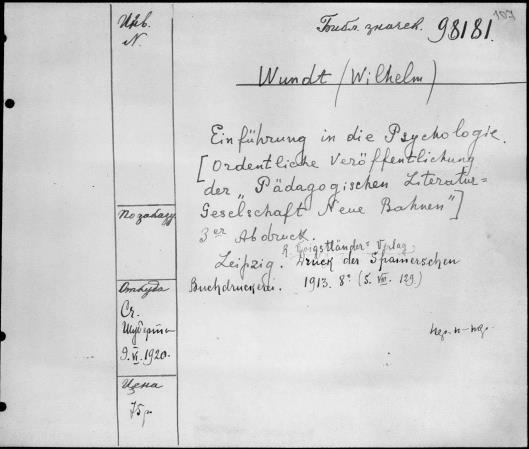 107
Инв.
N.
Библ. значек. 98181.
Wundt (Wilhelm)
Einführung in die Psychologie.
[Ordentliche Veröffentlichung
der „Pädagogischen Literatur=
Gesellschaft Neue Bahnen"]
3er Abdruck.
R. Voigtländers Verlag
Leipzig. Druck der Spamerschen
Buchdruckerei. 1913. 8° (S. VIII. 129.)
По заказу
Откуда
Ст.
Шуберта
9.VI.1920.
Цена
75 р.